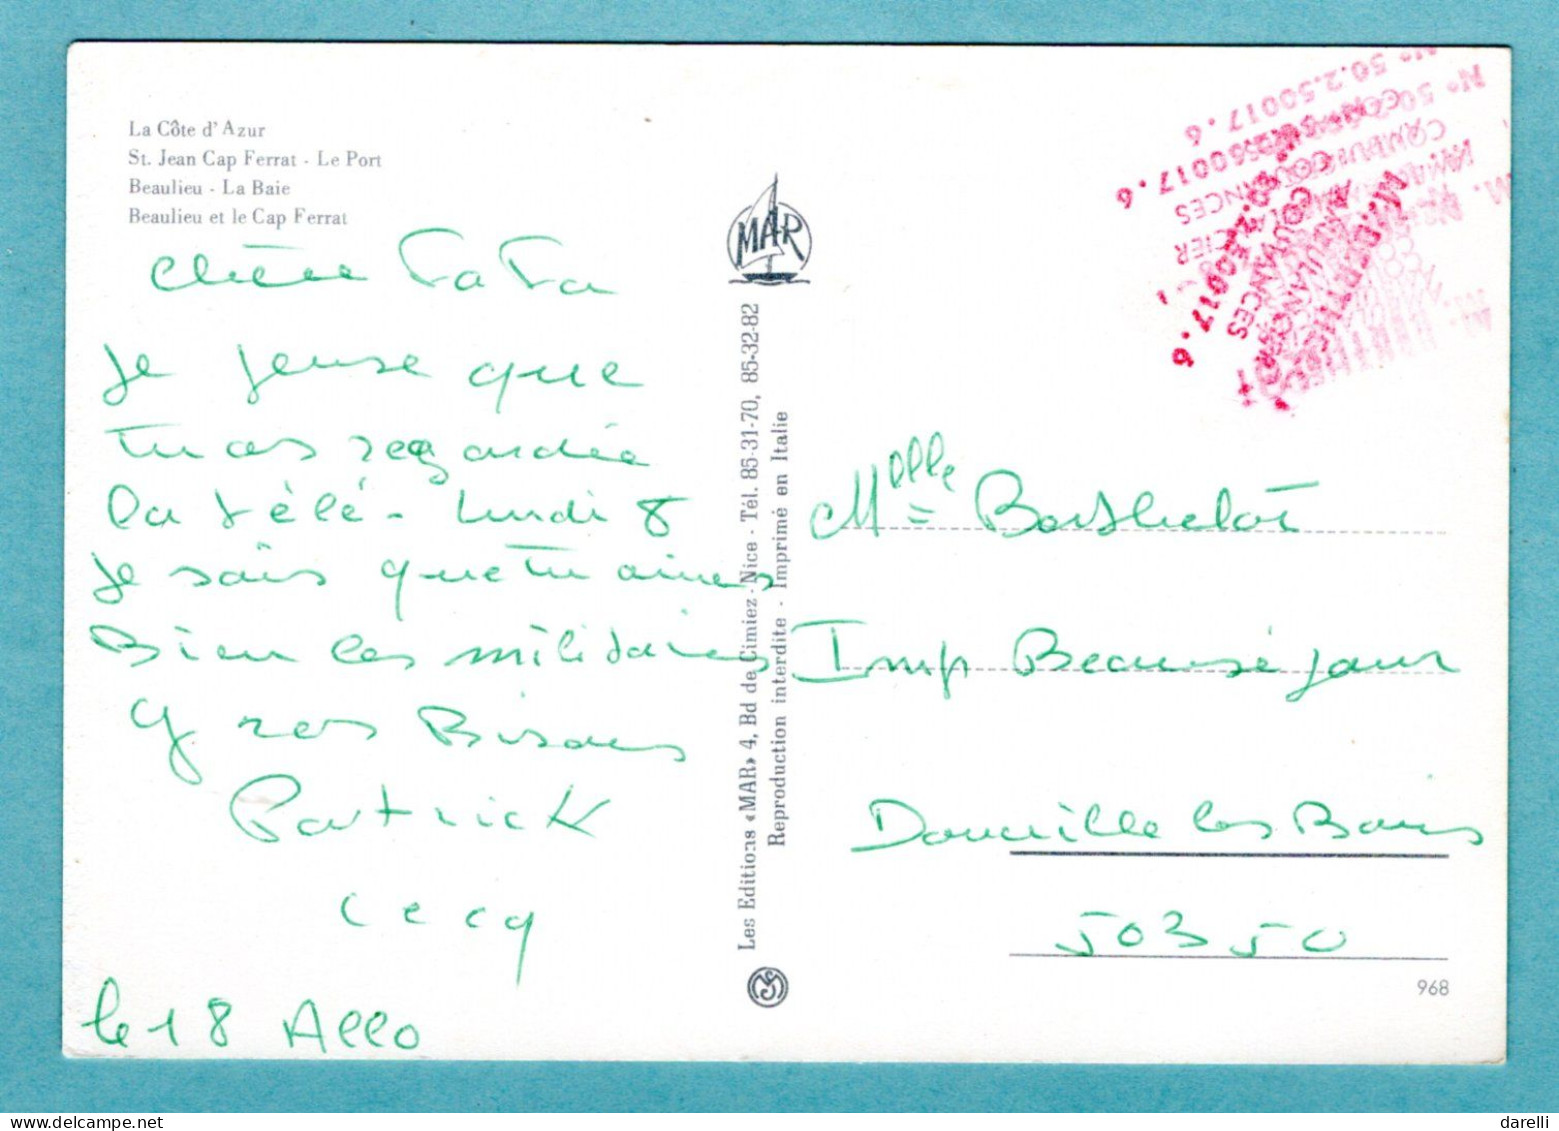 La Côte d'Azur
St. Jean Cap Ferrat - Le Port
Beaulieu - La Baie
Beaulieu et le Cap Ferrat
chère TaTa
Je pense que
tu as regardée
la télé - lundi 8
Je sais que tu aimes
Bien les militaires
gros Bisous
Patrick
cecq
le 18 Allo
MAR
Les Editions «MAR» 4, Bd de Cimiez - Nice - Tél. 85-31-70, 85-32-82
Reproduction interdite - Imprimé en Italie
N° 50.2.50017.6
COUVANCES
Melle = Berthelot
Imp Beauséjour
Donville les Bains
50350
968
darelli